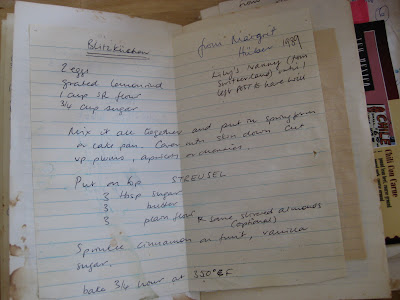 Blitzkuchen
2 eggs
grated lemon rind
1 cup SR flour
3/4 cup sugar
from Margrit
Hüber 1989
Lily's nanny (from
Switzerland) who
left
Mix it all together and put in springform
or cake pan. Cover with skin down cut
up plums, apricots or cherries.
Put on top STREUSEL
3 tbsp sugar
3 butter
3 plain flour & some slivered almonds
(optional)
Sprinkle cinnamon on fruit, vanilla
sugar.
bake 3/4 hour at 350° F